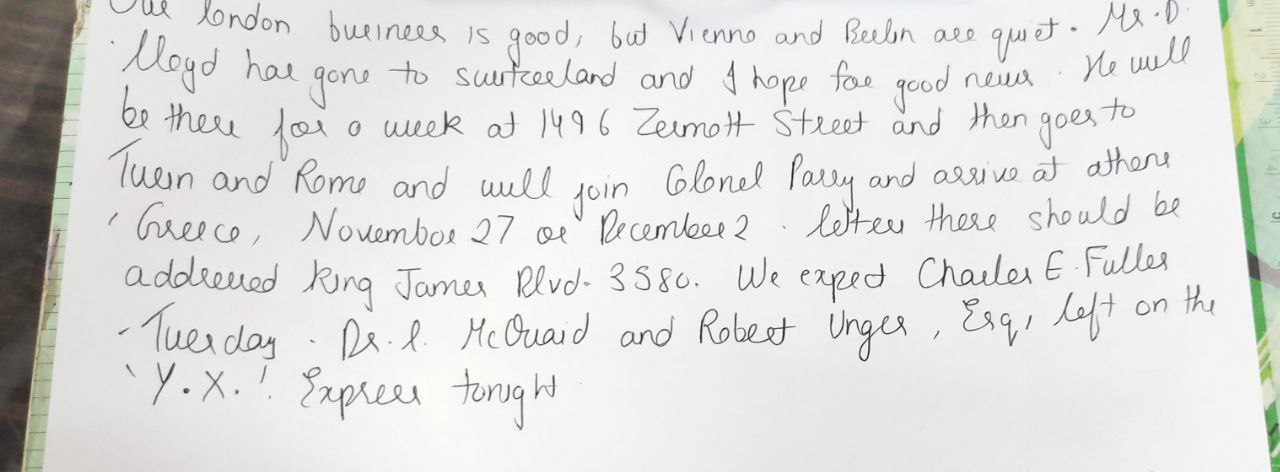 Our london business is good, but Vienna and Berlin are quiet. Mr. D.
Lloyd has gone to switzerland and I hope for good news. He will
be there for a week at 1496 Zermott Street and then goes to
Turin and Rome and will join Colonel Parry and arrive at athens
, Greece, November 27 or December 2. letters there should be
addressed King James Blvd. 3580. We expect Charles E. Fuller
Tuesday. Dr. L. McQuaid and Robert Unger, Esq, left on the
'Y.X.' Express tonight